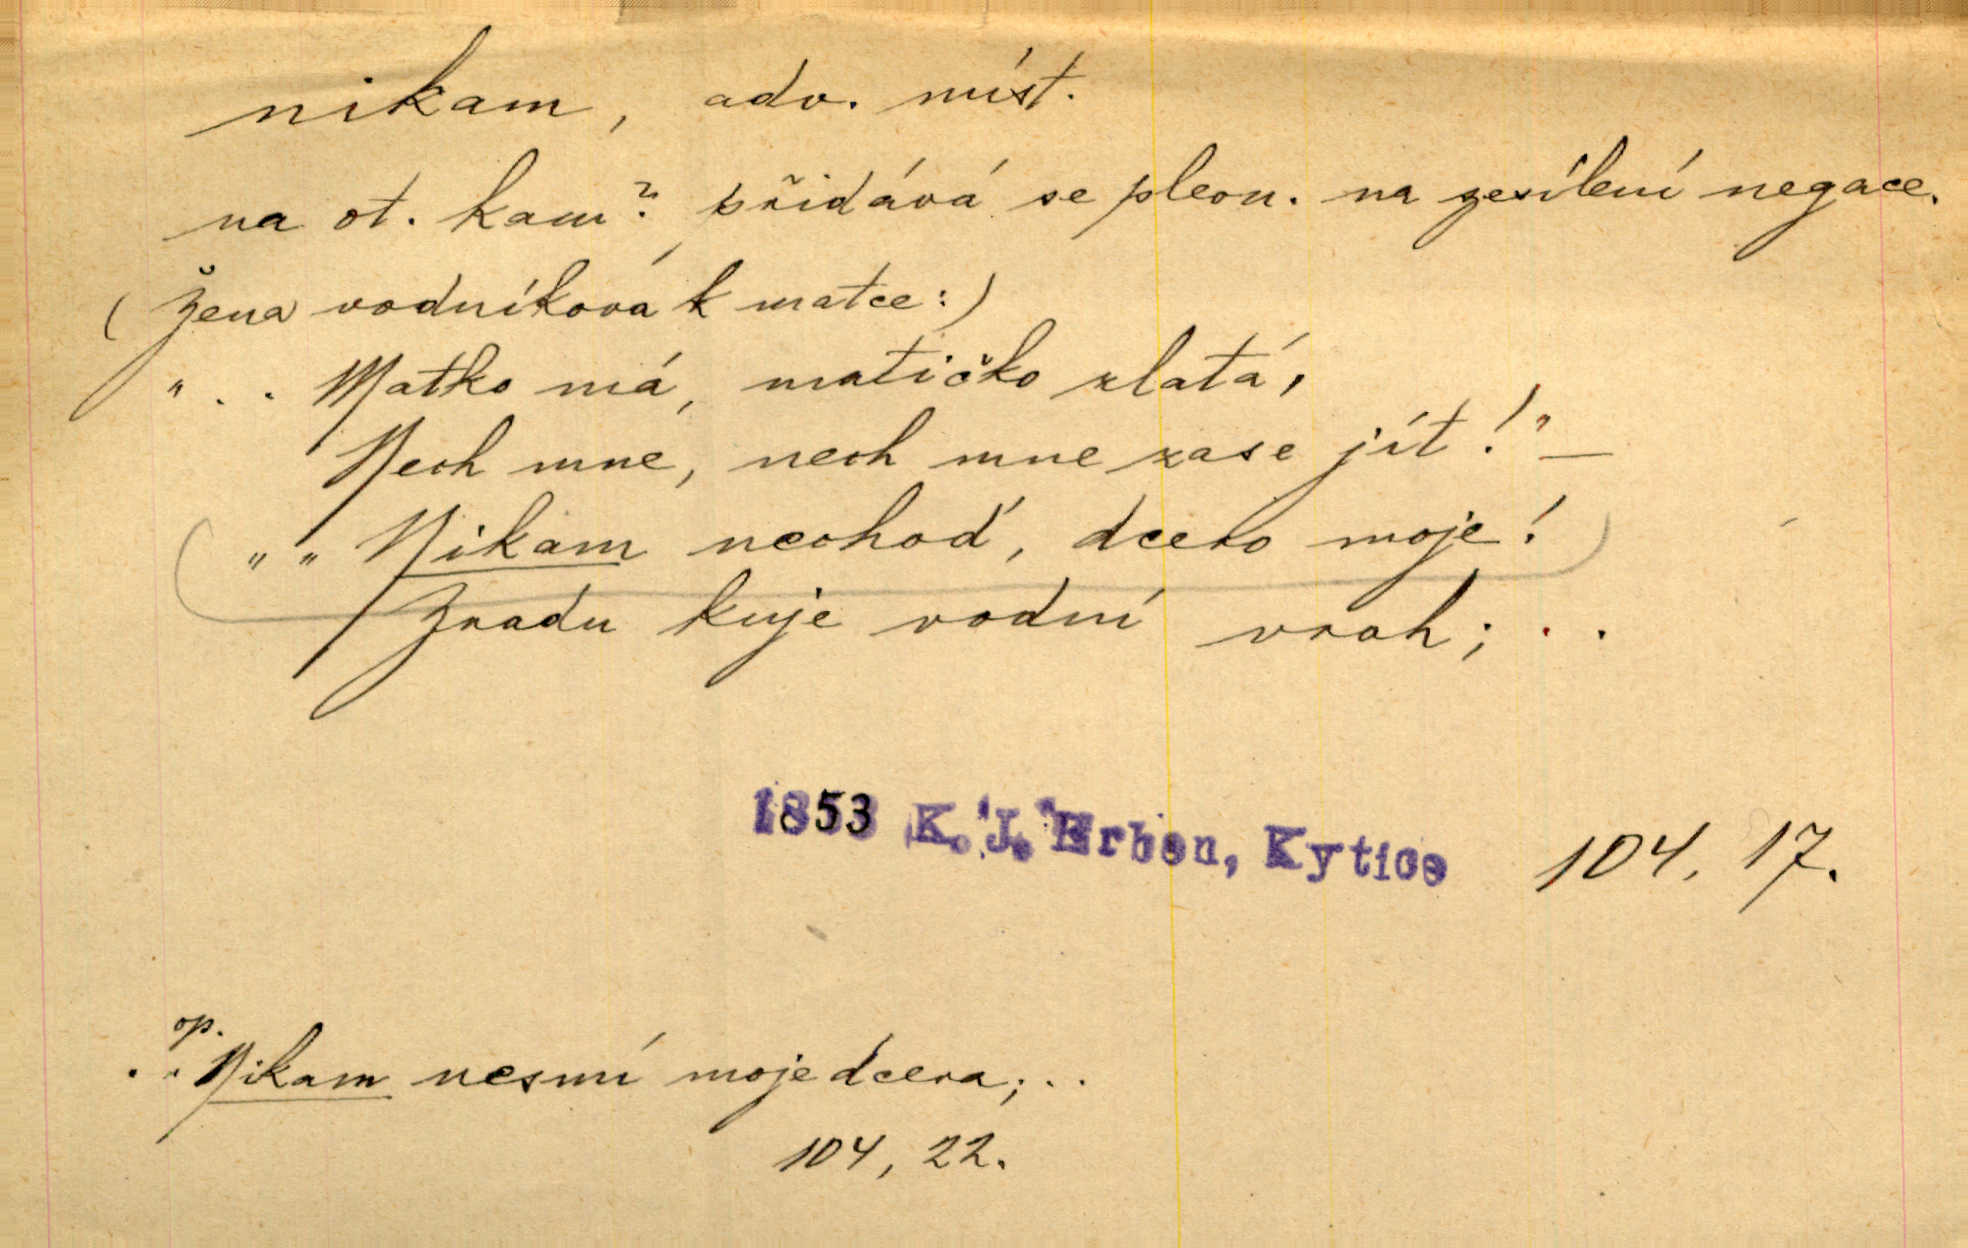 nikam, adv. míst.
na ot. kam? přidává se pleon. na zesílení negace.
(Žena vodníková k matce:)
".. Matko má, matičko zlatá,
Nech mne, nech mne zase jít!" —
„ „ Nikam nechoď, dcero moje!
Zradu kuje vodní vrah; . .
1853 K. J. Erben, Kytice 104, 17.
op.
. . Nikam nesmí moje dcera; . .
104, 22.